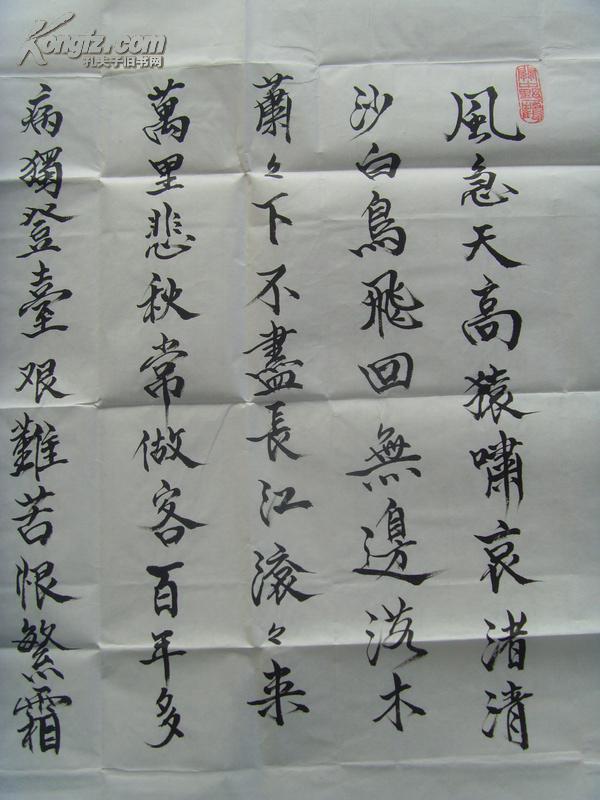 風急天高猿嘯哀渚清
沙白鳥飛回無邊落木
蕭々下不盡長江滾々来
萬里悲秋常做客百年多
病獨登臺艰難苦恨繁霜
Kongfz.com
孔夫子旧书网